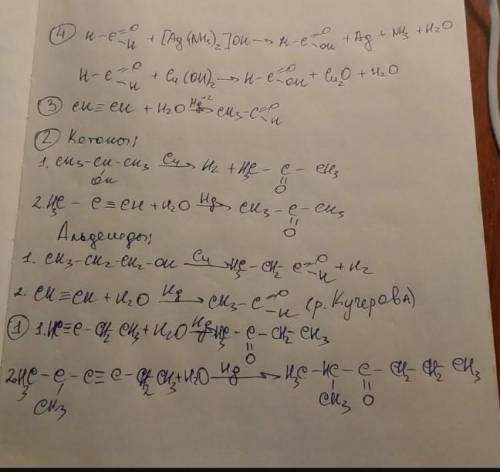 ④ H-C(=O)H + [Ag(NH₃)₂]OH → H-C(=O)OH + Ag + NH₃ + H₂O
H-C(=O)H + Cu(OH)₂ → H-C(=O)OH + Cu₂O + H₂O
③ CH≡CH + H₂O Hg⁺² → CH₃-C(=O)H
② Кетоны:
1. CH₃-CH-CH₃ Cu → H₂ + H₃C - C - CH₃
OH O
2. H₃C - C≡CH + H₂O Hg → CH₃-C-CH₃
O
Альдегиды:
1. CH₃-CH₂-CH₂-OH Cu → H₃C-CH₂ C(=O)H + H₂
2. CH≡CH + H₂O Hg → CH₃-C(=O)H (р. Кучерова)
① 1. HC≡C-CH₂CH₃ + H₂O Hg → H₃C-C-CH₂CH₃
O
2. H₃C-C-C≡C-CH₂CH₃ + H₂O Hg → H₃C-HC-C-CH₂-CH₂CH₃
CH₃ CH₃ O